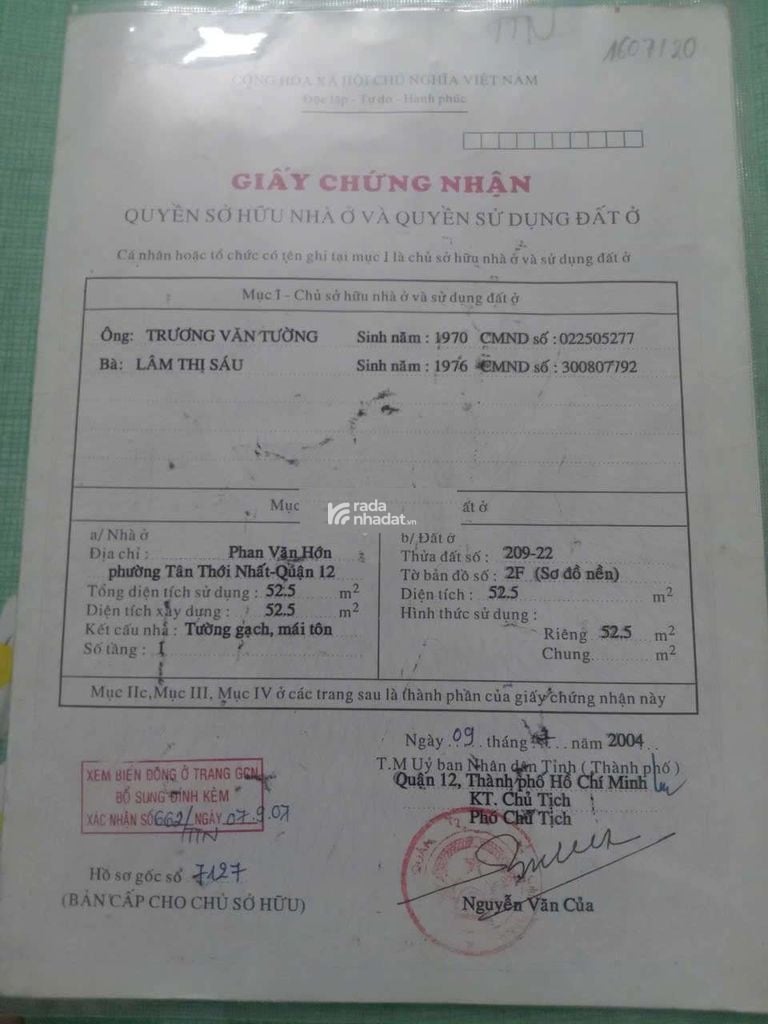 TTN
1607/20
CỘNG HÒA XÃ HỘI CHỦ NGHĨA VIỆT NAM
Độc lập - Tự do - Hạnh phúc
GIẤY CHỨNG NHẬN
QUYỀN SỞ HỮU NHÀ Ở VÀ QUYỀN SỬ DỤNG ĐẤT Ở
Cá nhân hoặc tổ chức có tên ghi tại mục I là chủ sở hữu nhà ở và sử dụng đất ở
Mục I - Chủ sở hữu nhà ở và sử dụng đất ở
Ông: TRƯƠNG VĂN TƯỜNG Sinh năm : 1970 CMND số : 022505277
Bà: LÂM THỊ SÁU Sinh năm : 1976 CMND số : 300807792
Mục ất ở
rada
nhadat.vn
a/ Nhà ở
Địa chỉ : Phan Văn Hớn
phường Tân Thới Nhất-Quận 12
Tổng diện tích sử dụng : 52.5 m2
Diện tích xây dựng : 52.5 m2
Kết cấu nhà : Tường gạch, mái tôn
Số tầng : 1
b/ Đất ở
Thửa đất số : 209-22
Tờ bản đồ số : 2F (Sơ đồ nền)
Diện tích : 52.5 m2
Hình thức sử dụng :
Riêng 52.5 m2
Chung m2
Mục IIc, Mục III, Mục IV ở các trang sau là thành phần của giấy chứng nhận này
Ngày 09 tháng năm 2004
T.M Uỷ ban Nhân dân Tỉnh ( Thành phố )
Quận 12, Thành phố Hồ Chí Minh
KT. Chủ Tịch
Phó Chủ Tịch
XEM BIẾN ĐỘNG Ở TRANG GCN
BỔ SUNG ĐÍNH KÈM
XÁC NHẬN SỐ 662/ NGÀY 07.9.07
TTN
Hồ sơ gốc số 7127
(BẢN CẤP CHO CHỦ SỞ HỮU)
QUẬN 12
Nguyễn Văn Của